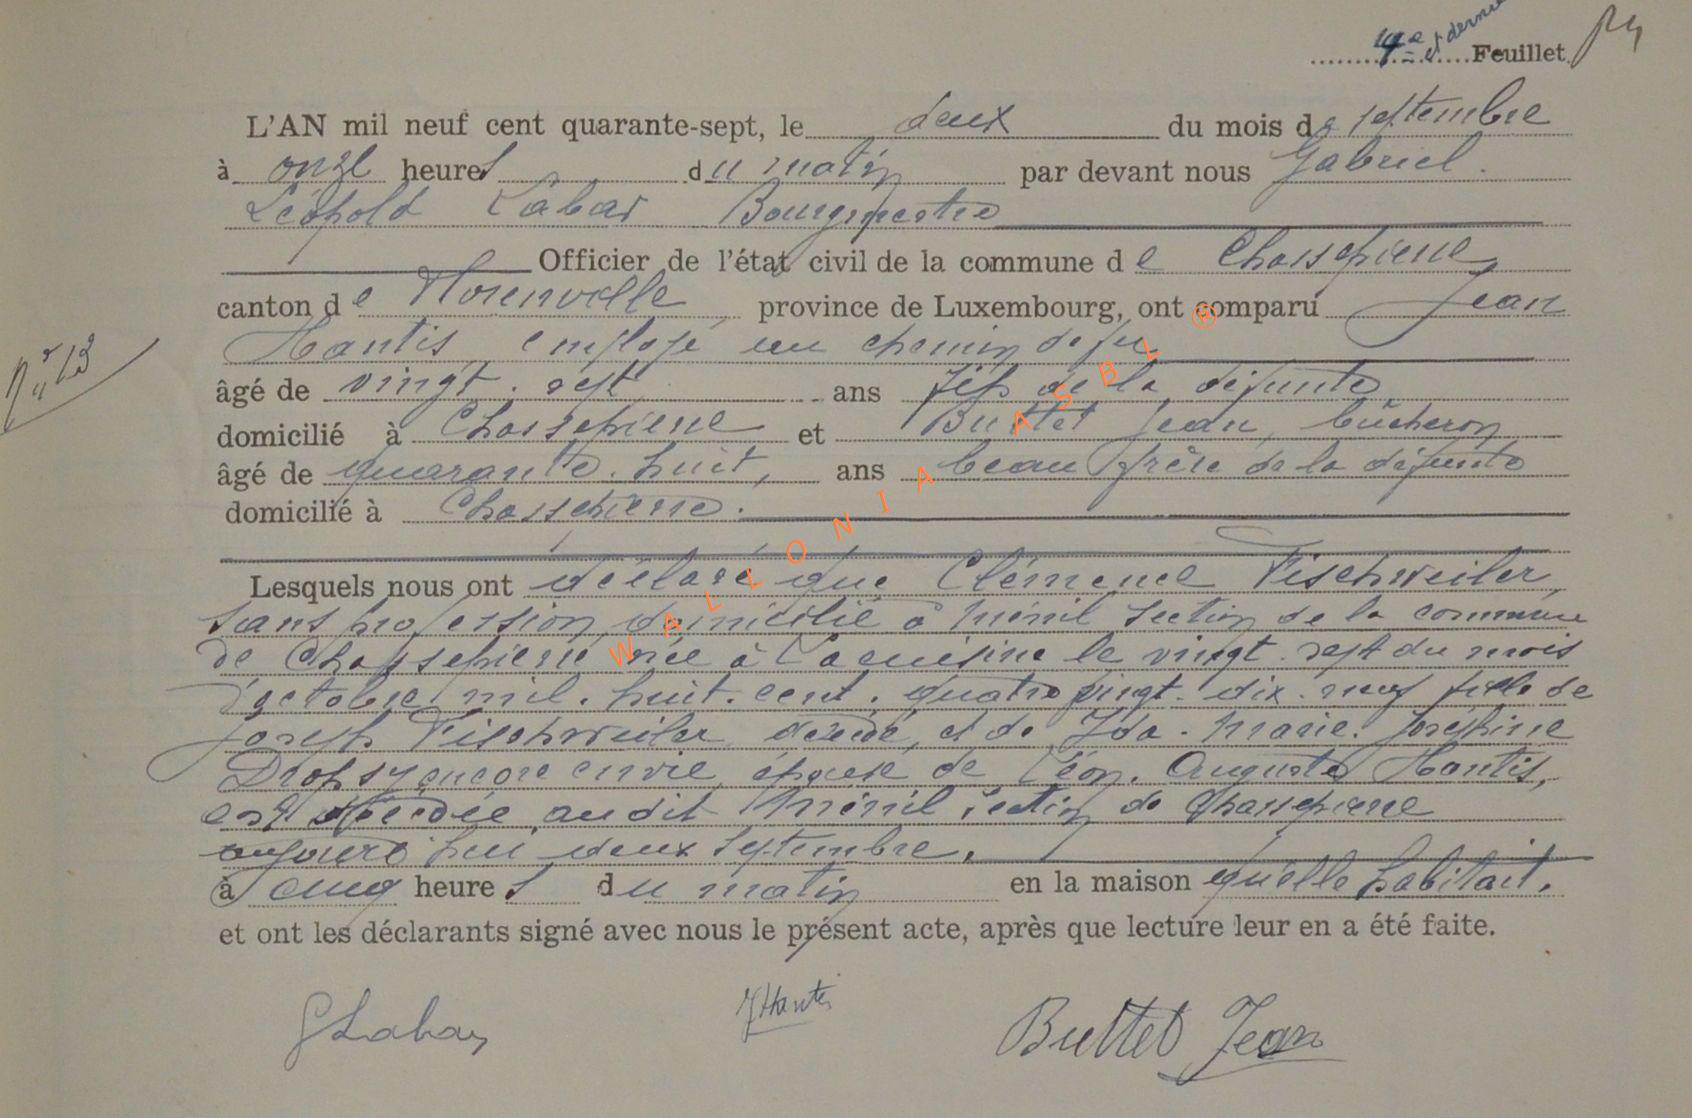 4e et dernier Feuillet
L'AN mil neuf cent quarante-sept, le deux du mois de septembre
à onze heures du matin par devant nous Gabriel
Léopold Labar Bourgmestre
Officier de l'état civil de la commune de Chassepierre
canton de Florenville province de Luxembourg, ont comparu Jean
Hantis, employé au chemin de fer
âgé de vingt-sept ans fils de la défunte
domicilié à Chassepierre et Buttet Jean, bûcheron
âgé de quarante-huit, ans beau frère de la défunte
domicilié à Chassepierre.
Lesquels nous ont déclaré que Clémence Fischweiler,
sans profession, domicilié à Ménil section de la commune
de Chassepierre née à Lacuisine le vingt-sept du mois
d'octobre mil-huit-cent-quatre vingt-dix-neuf fille de
Joseph Fischweiler décédé, et de Ida-Marie-Joséphine
Dropsy encore en vie, épouse de Léon-Auguste Hantis,
est décédée audit Ménil section de Chassepierre
aujourd'hui deux septembre,
à cinq heures du matin en la maison qu'elle habitait,
et ont les déclarants signé avec nous le présent acte, après que lecture leur en a été faite.
GLabar JHantis Buttet Jean
No 13
WALLONIA ASBL ®